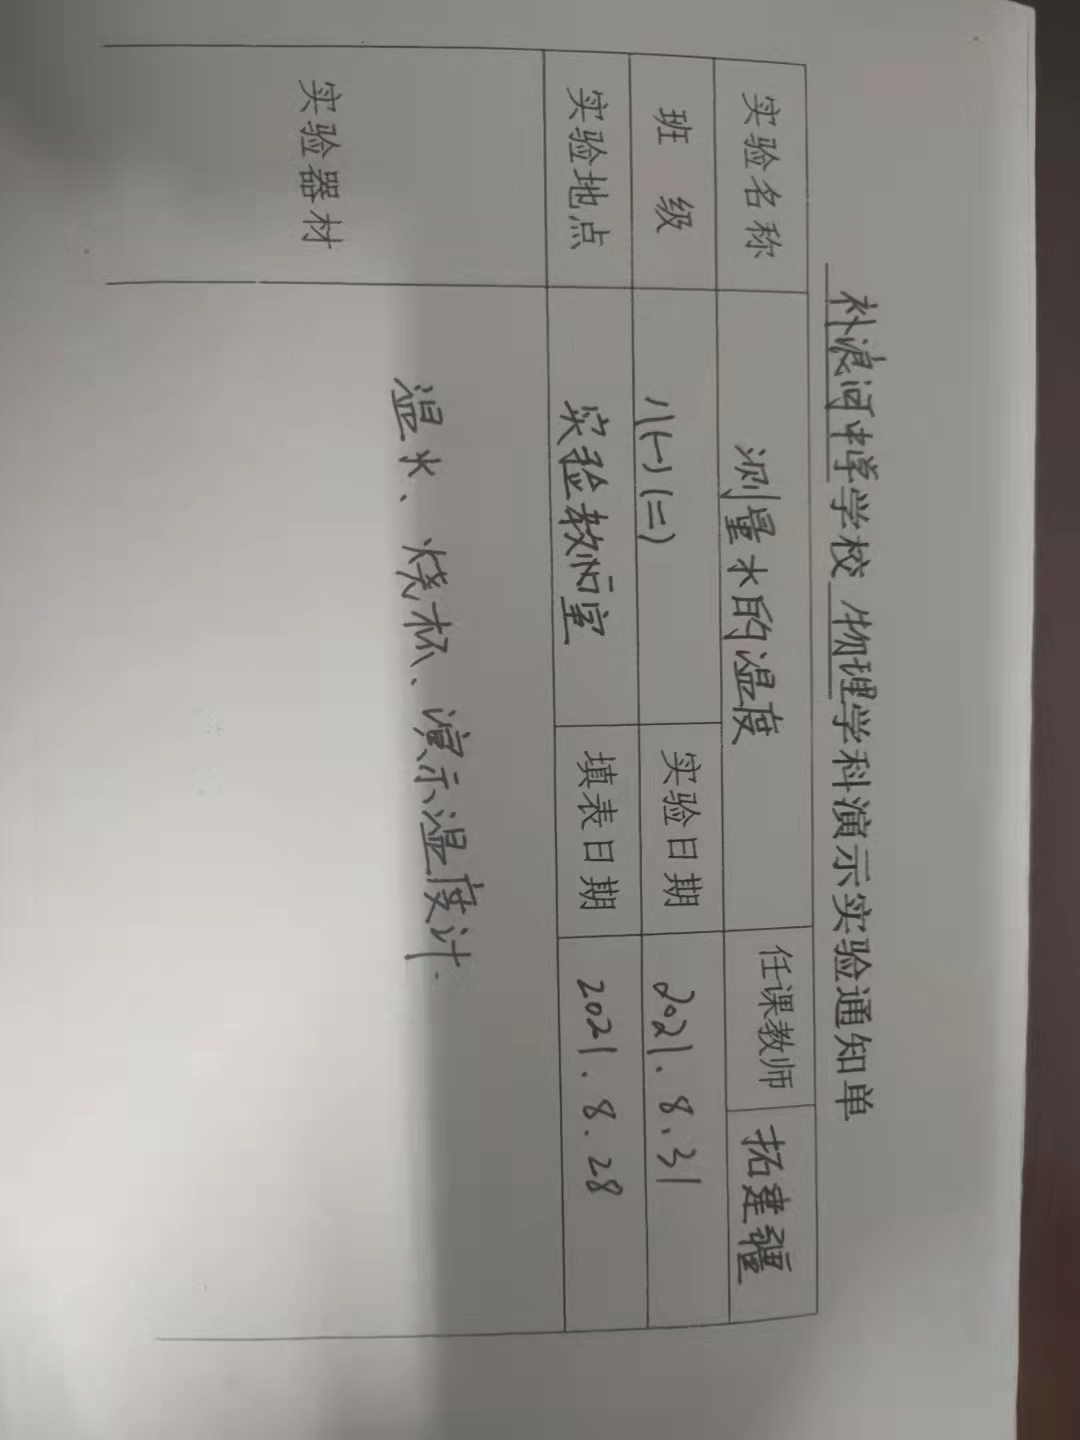 补浪河中学学校 物理学科演示实验通知单
实验名称 测量水的温度 任课教师 拓建疆
班级 八(一)(二) 实验日期 2021.8.31
实验地点 实验教室 填表日期 2021.8.28
实验器材 温水、烧杯、演示温度计.